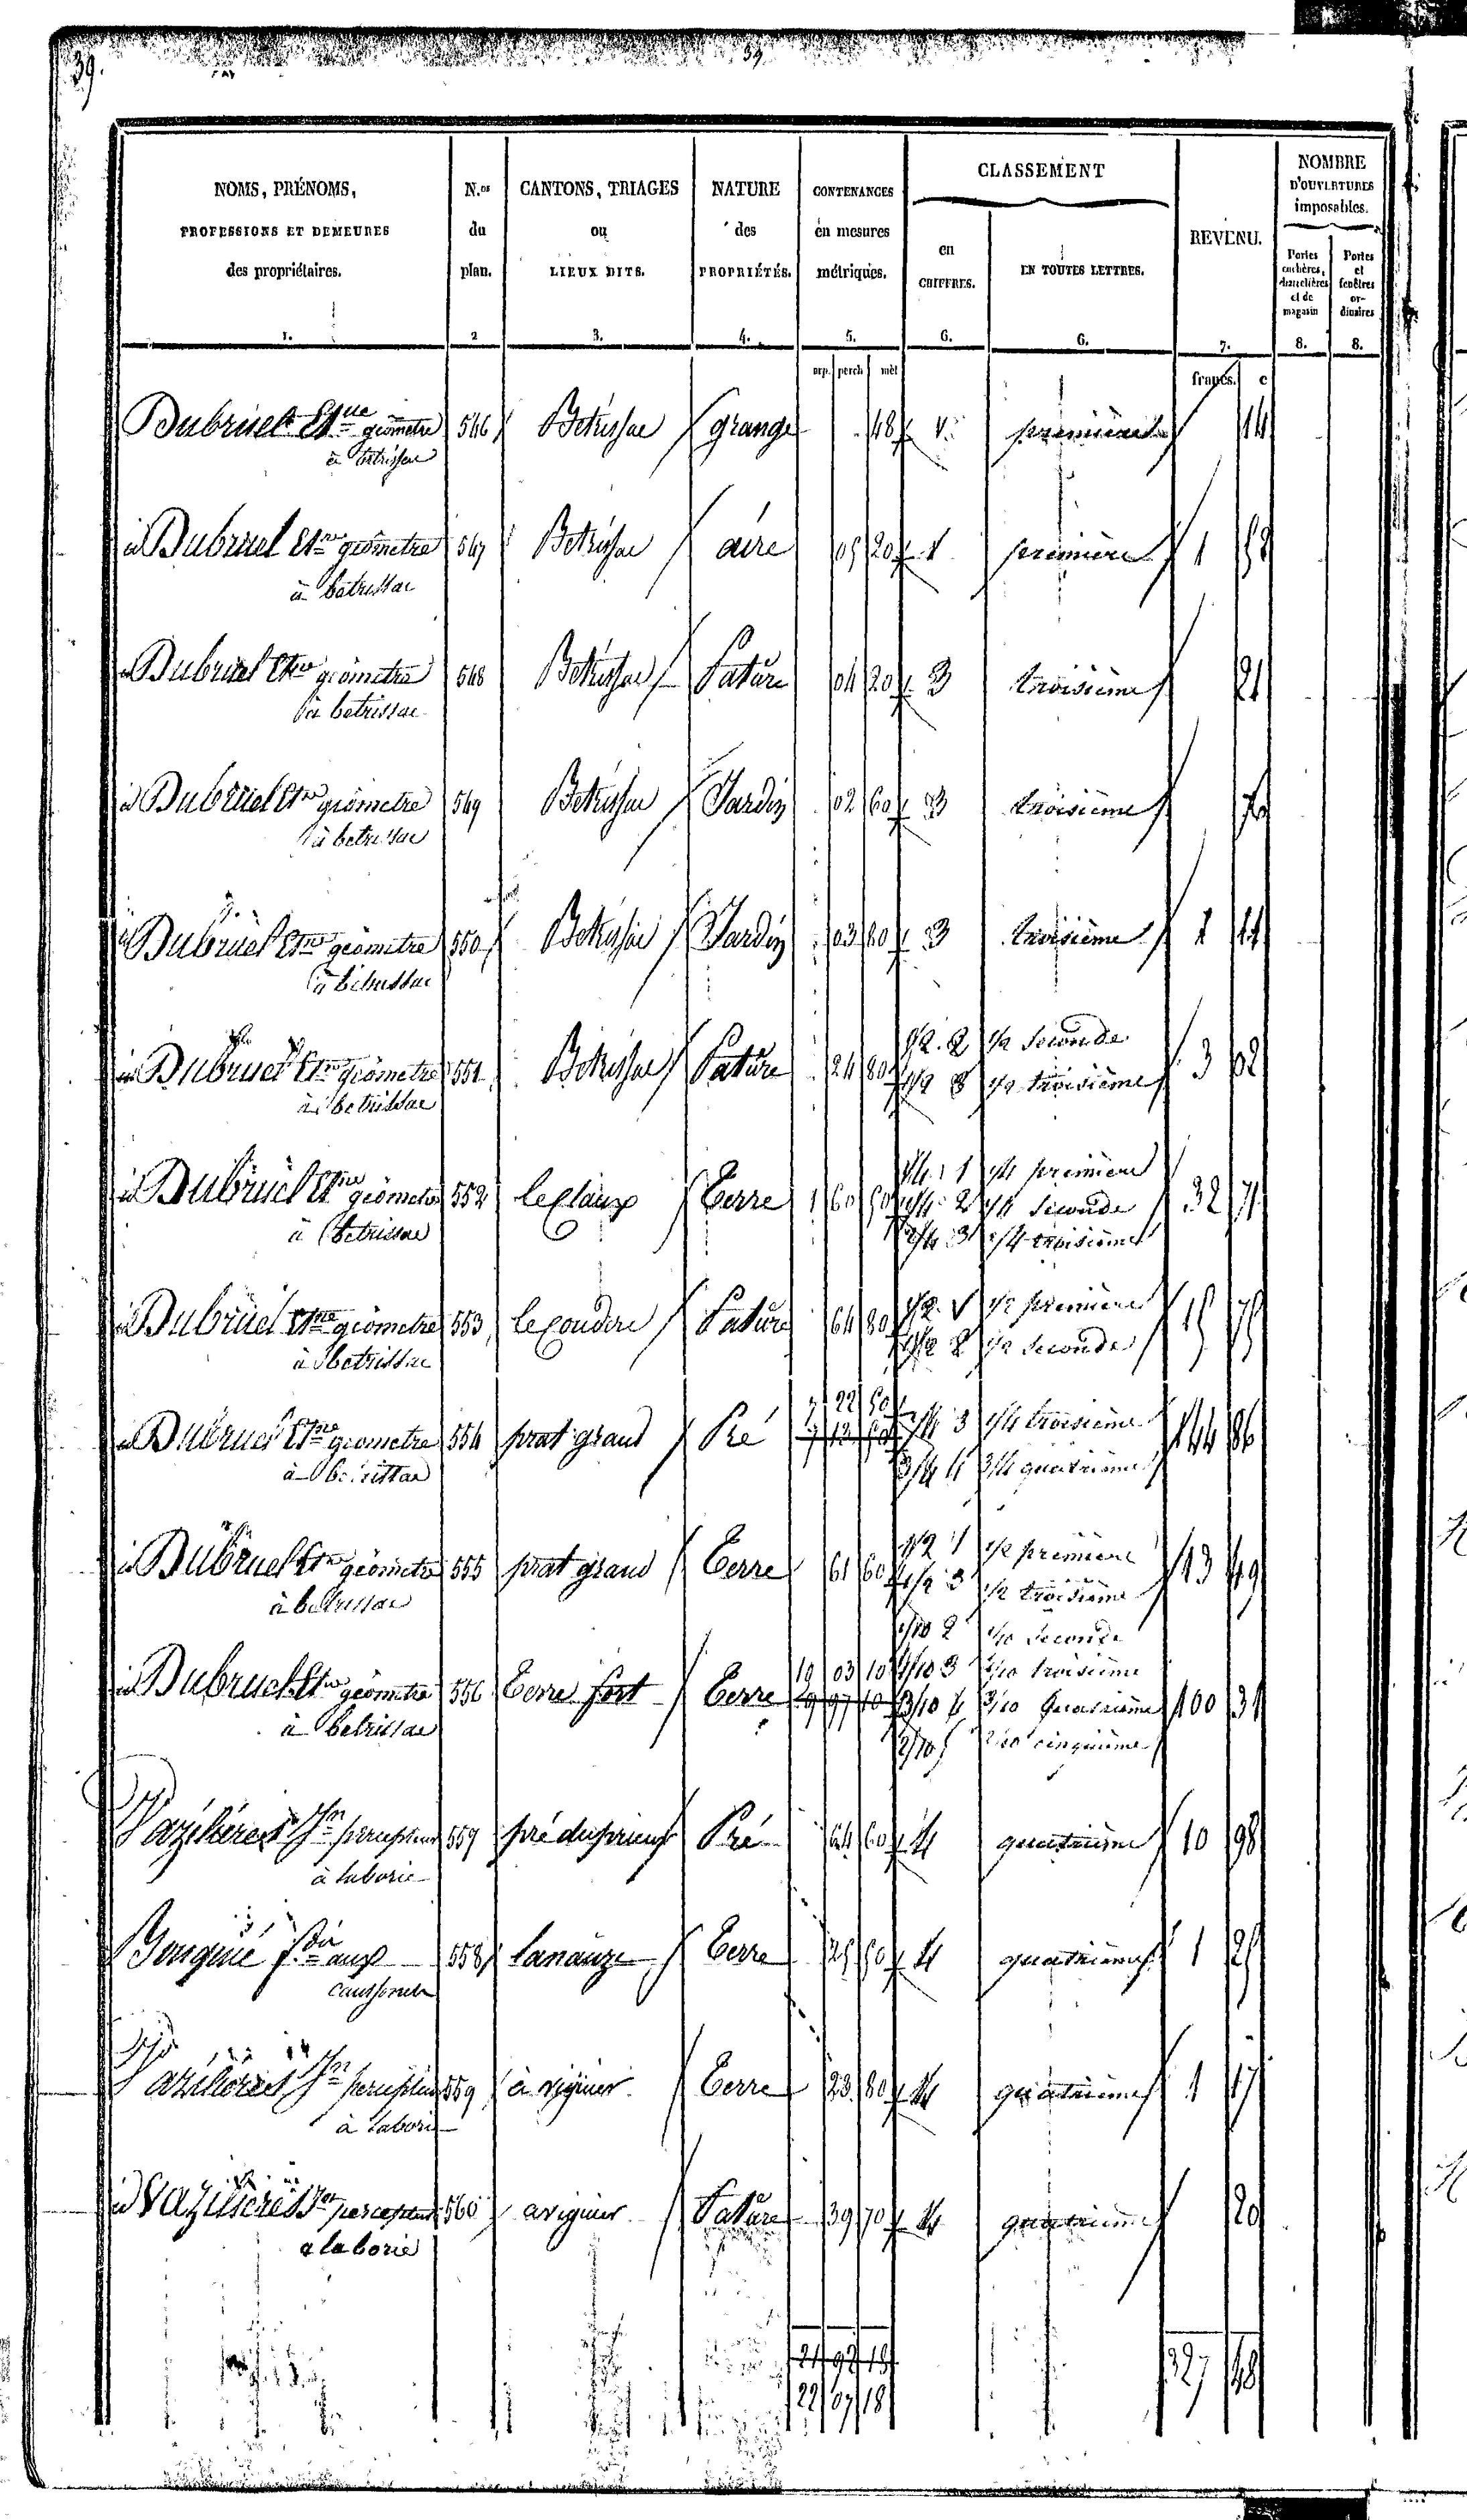 39.
39
NOMS, PRÉNOMS,
PROFESSIONS ET DEMEURES
des propriétaires.
1.
N.os
du
plan.
2
CANTONS, TRIAGES
ou
LIEUX DITS.
3.
NATURE
des
PROPRIÉTÉS.
4.
CONTENANCES
en mesures
métriques.
5.
CLASSEMENT
en
CHIFFRES.
6.
EN TOUTES LETTRES.
6.
REVENU.
7.
NOMBRE
D'OUVERTURES
imposables.
Portes
cochères,
charretières
et de
magasin
8.
Portes
et
fenêtres
or-
dinaires
8.
arp. perch mèt
francs. c
Dubruel Etne géomètre 546 Betrissac grange 48 1 première 14
à betrissac
id Dubruel Etne géometre 547 Betrissac aire 05 20 1 première 1
à betrissac
id Dubruel Etne géometre 548 Betrissac Pature 04 20 3 troisième 21
à betrissac
id Dubruel Etne géometre 549 Betrissac Jardin 02 60 3 troisième
à betrissac
id Dubruel Etne géometre 550 Betrissac Jardin 03 80 3 troisième 1 14
à betrissac
id Dubruel Etne géometre 551 Betrissac Pature 24 80 1/2 2 1/2 seconde 3 02
1/2 3 1/2 troisième
à betrissac
id Dubruel Etne géometre 552 le claux Terre 1 60 1/4 1 1/4 première 32 71
1/4 2 1/4 seconde
2/4 3 2/4 troisième
à betrissac
id Dubruel Etne géometre 553 le couderc Pature 64 80 1/2 1 1/2 première 15 75
1/2 2 1/2 seconde
à betrissac
7 22 50
id Dubruel Etne géometre 554 prat grand Pré 1/4 3 1/4 troisième 144 86
3/4 4 3/4 quatrième
à betrissac
id Dubruel Etne géometre 555 prat grand Terre 61 60 1/2 1 1/2 première 13 49
1/2 3 1/2 troisième
à betrissac
1/10 2 1/10 seconde
10 03 10 4/10 3 4/10 troisième
id Dubruel Etne géometre 556 Terre fort Terre 9 97 10 3/10 4 3/10 Quatrième 100 31
2/10 5 2/10 cinquième
à betrissac
Vazilières Jn percepteur 557 pré du prieur Pré 64 60 4 quatrième 10 98
à laborie
558 lanauze Terre 25 50 4 quatrième 1 25
Vazilières Jn percepteur 559 à viguier Terre 23 80 4 quatrième 1 17
à laborie
id Vazilières Jn percepteur 560 a viguier Pature 39 70 4 quatrième 20
a laborie
21 92 18
22 07 18
327 48